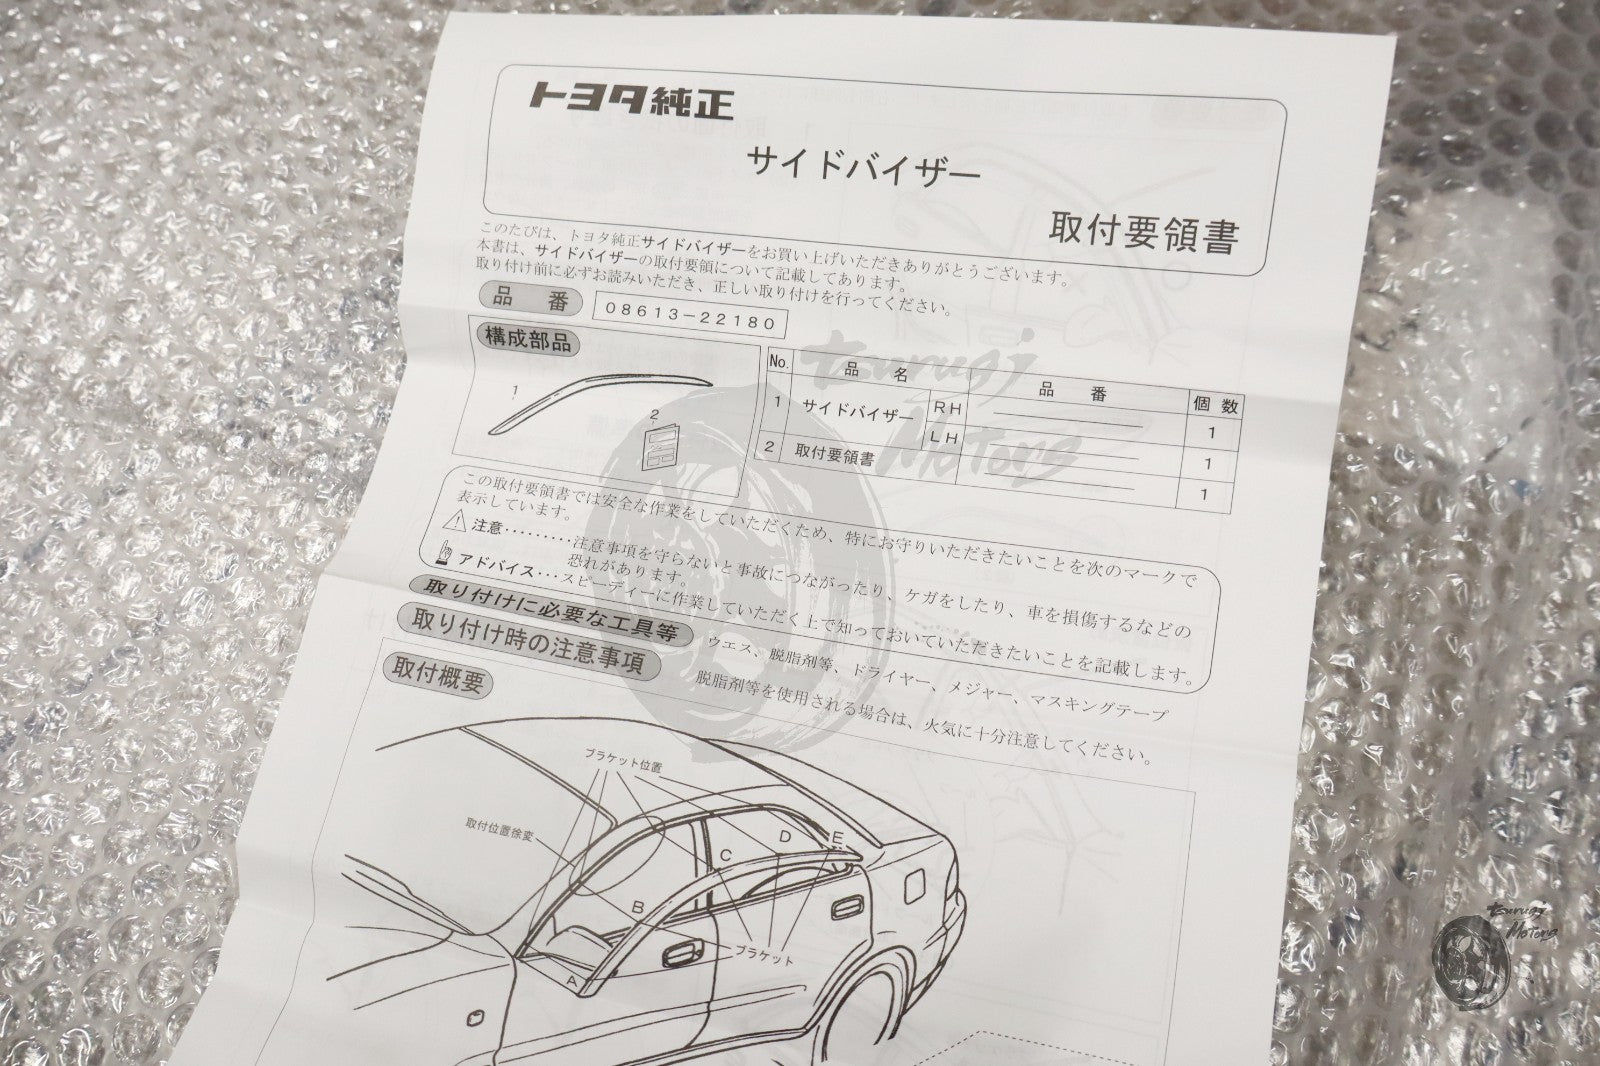 トヨタ純正
サイドバイザー
取付要領書
このたびは、トヨタ純正サイドバイザーをお買い上げいただきありがとうございます。
本書は、サイドバイザーの取付要領について記載してあります。
取り付け前に必ずお読みいただき、正しい取り付けを行ってください。
品 番 08613-22180
構成部品
1
2
No. 品 名 品 番 個 数
1 サイドバイザー RH 1
LH 1
2 取付要領書 1
この取付要領書では安全な作業をしていただくため、特にお守りいただきたいことを次のマークで
表示しています。
注意………注意事項を守らないと事故につながったり、ケガをしたり、車を損傷するなどの
恐れがあります。
アドバイス…スピーディーに作業していただく上で知っておいていただきたいことを記載します。
取り付けに必要な工具等 ウエス、脱脂剤等、ドライヤー、メジャー、マスキングテープ
取り付け時の注意事項 脱脂剤等を使用される場合は、火気に十分注意してください。
取付概要
ブラケット位置
取付位置徐変
D
E
C
B
ブラケット
A
tsurugi
Motors
tsurugi
Motors